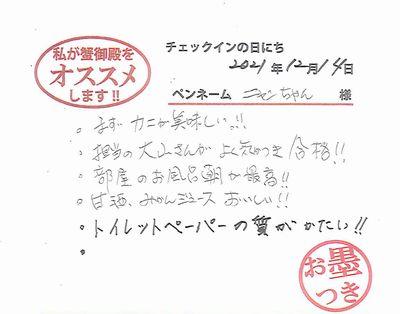 私が蟹御殿を
オススメ
します!!
チェックインの日にち
2021年12月14日
ペンネーム ニャンちゃん 様
・まず カニが美味しい!!
・担当の大山さんが よく気がつき 合格!!
・部屋のお風呂朝が最高!!
・甘酒、みかんジュース おいしい!!
・トイレットペーパーの質がかたい!!
・
お墨
つき